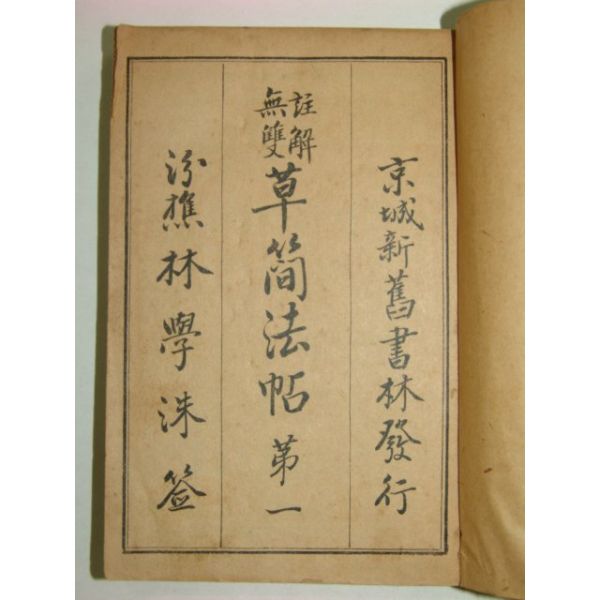 京城新舊書林發行
註解
無雙
草簡法帖第一
汾樵林學洙簽